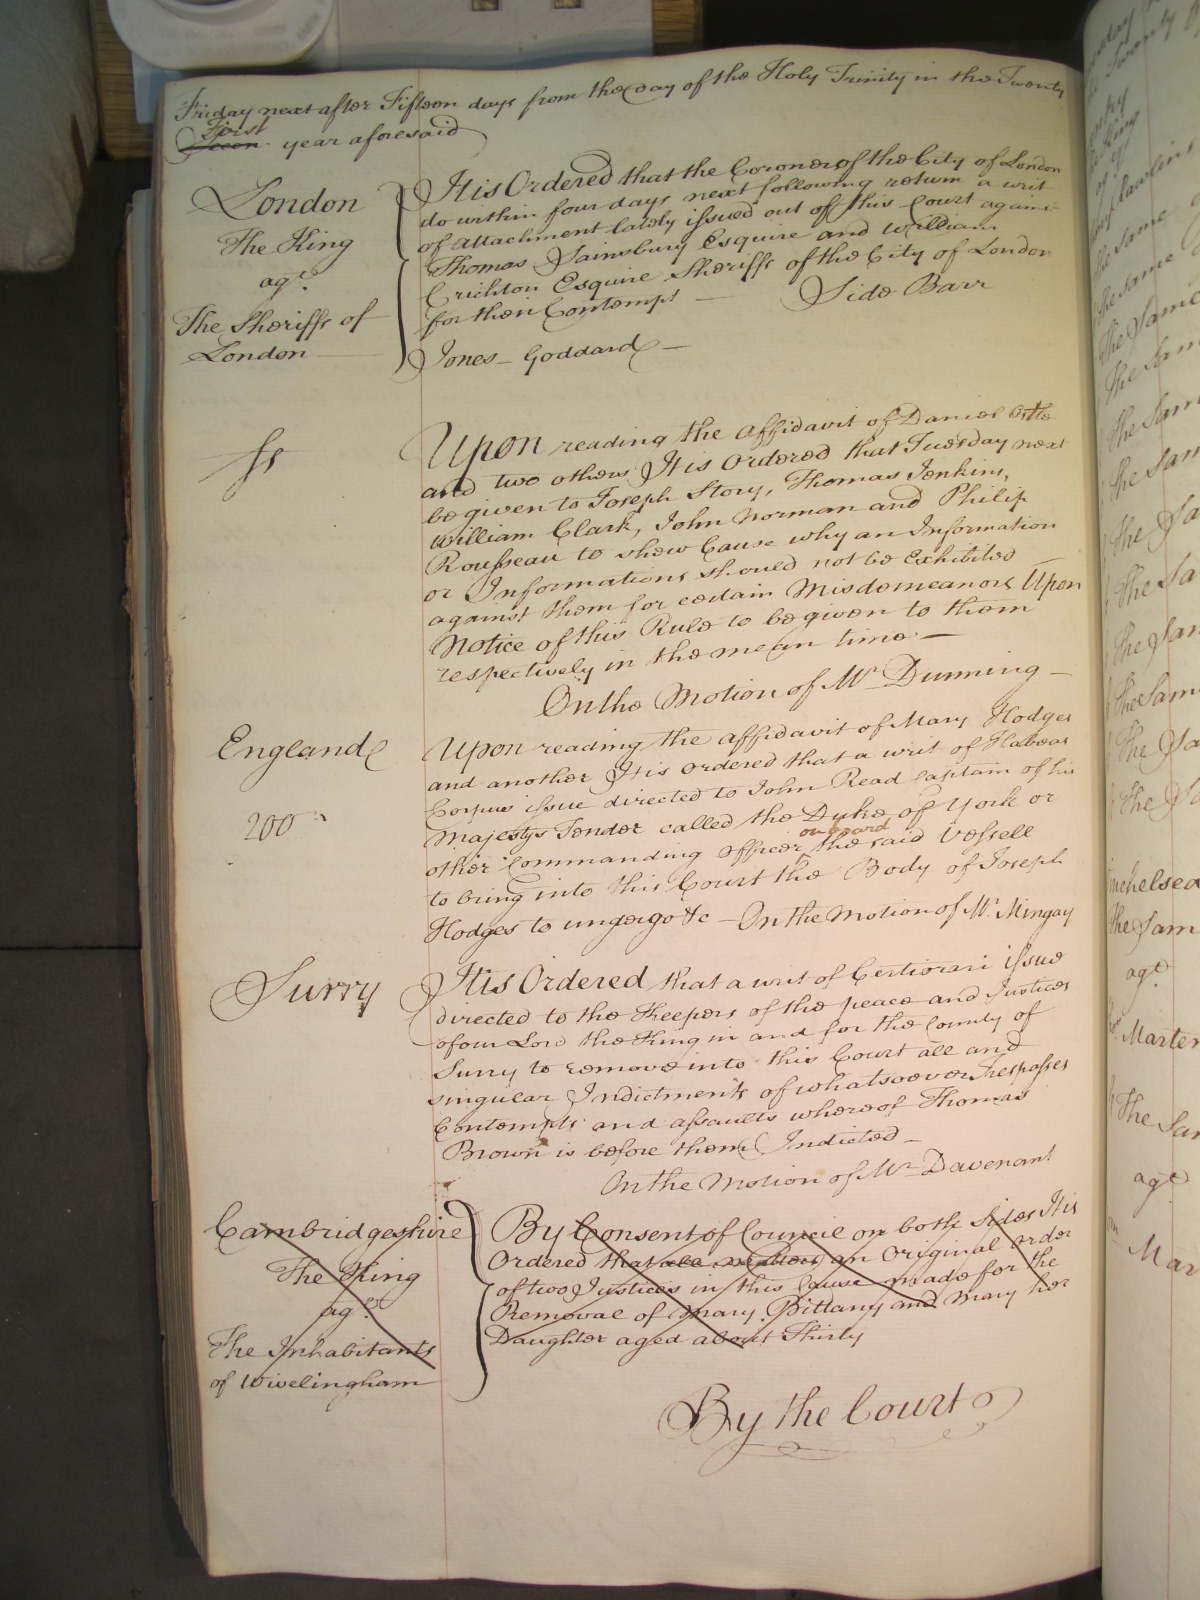 Friday next after Fifteen days from the day of the Holy Trinity in the Twenty
First
Secon year aforesaid
London
The King
agt.
The Sheriffs of
London
It is Ordered that the Coroner of the City of London
do within four days next following return a writ
of attachment lately issued out of this Court against
Thomas Sainsbury Esquire and William
Crichton Esquire Sheriffs of the City of London
for their Contempt — Side Barr
Jones – Goddard –
ss
Upon reading the affidavit of Daniel
and two others It is Ordered that Tuesday next
be given to Joseph Story, Thomas Jenkins,
William Clark, John Norman and Philip
Rousseau to shew Cause why an Information
or Informations should not be Exhibited
against them for certain Misdemeanors Upon
Notice of this Rule to be given to them
respectively in the mean time —
On the Motion of Mr Dunning —
England
200
Upon reading the affidavit of Mary Hodges
and another It is Ordered that a writ of Habeas
Corpus issue directed to John Read Captain of his
Majestys Tender called the Duke of York or
on board
other Commanding Officer the said Vessell
to bring into this Court the Body of Joseph
Hodges to undergo &c – On the Motion of Mr. Mingay
Surry
It is Ordered that a writ of Certiorari issue
directed to the Keepers of the peace and Justices
of our Lord the King in and for the County of
Surry to remove into this Court all and
singular Indictments of whatsoever Trespasses
Contempts and assaults whereof Thomas
Brown is before them Indicted –
On the Motion of Mr Davenant
Cambridgeshire
The King
agt.
The Inhabitants
of Wivelingham
By Consent of Council on both sides It is
Ordered that an Original order
of two Justices in this Cause made for the
Removal of Mary Bittany and Mary her
Daughter aged about Thirty
By the Court